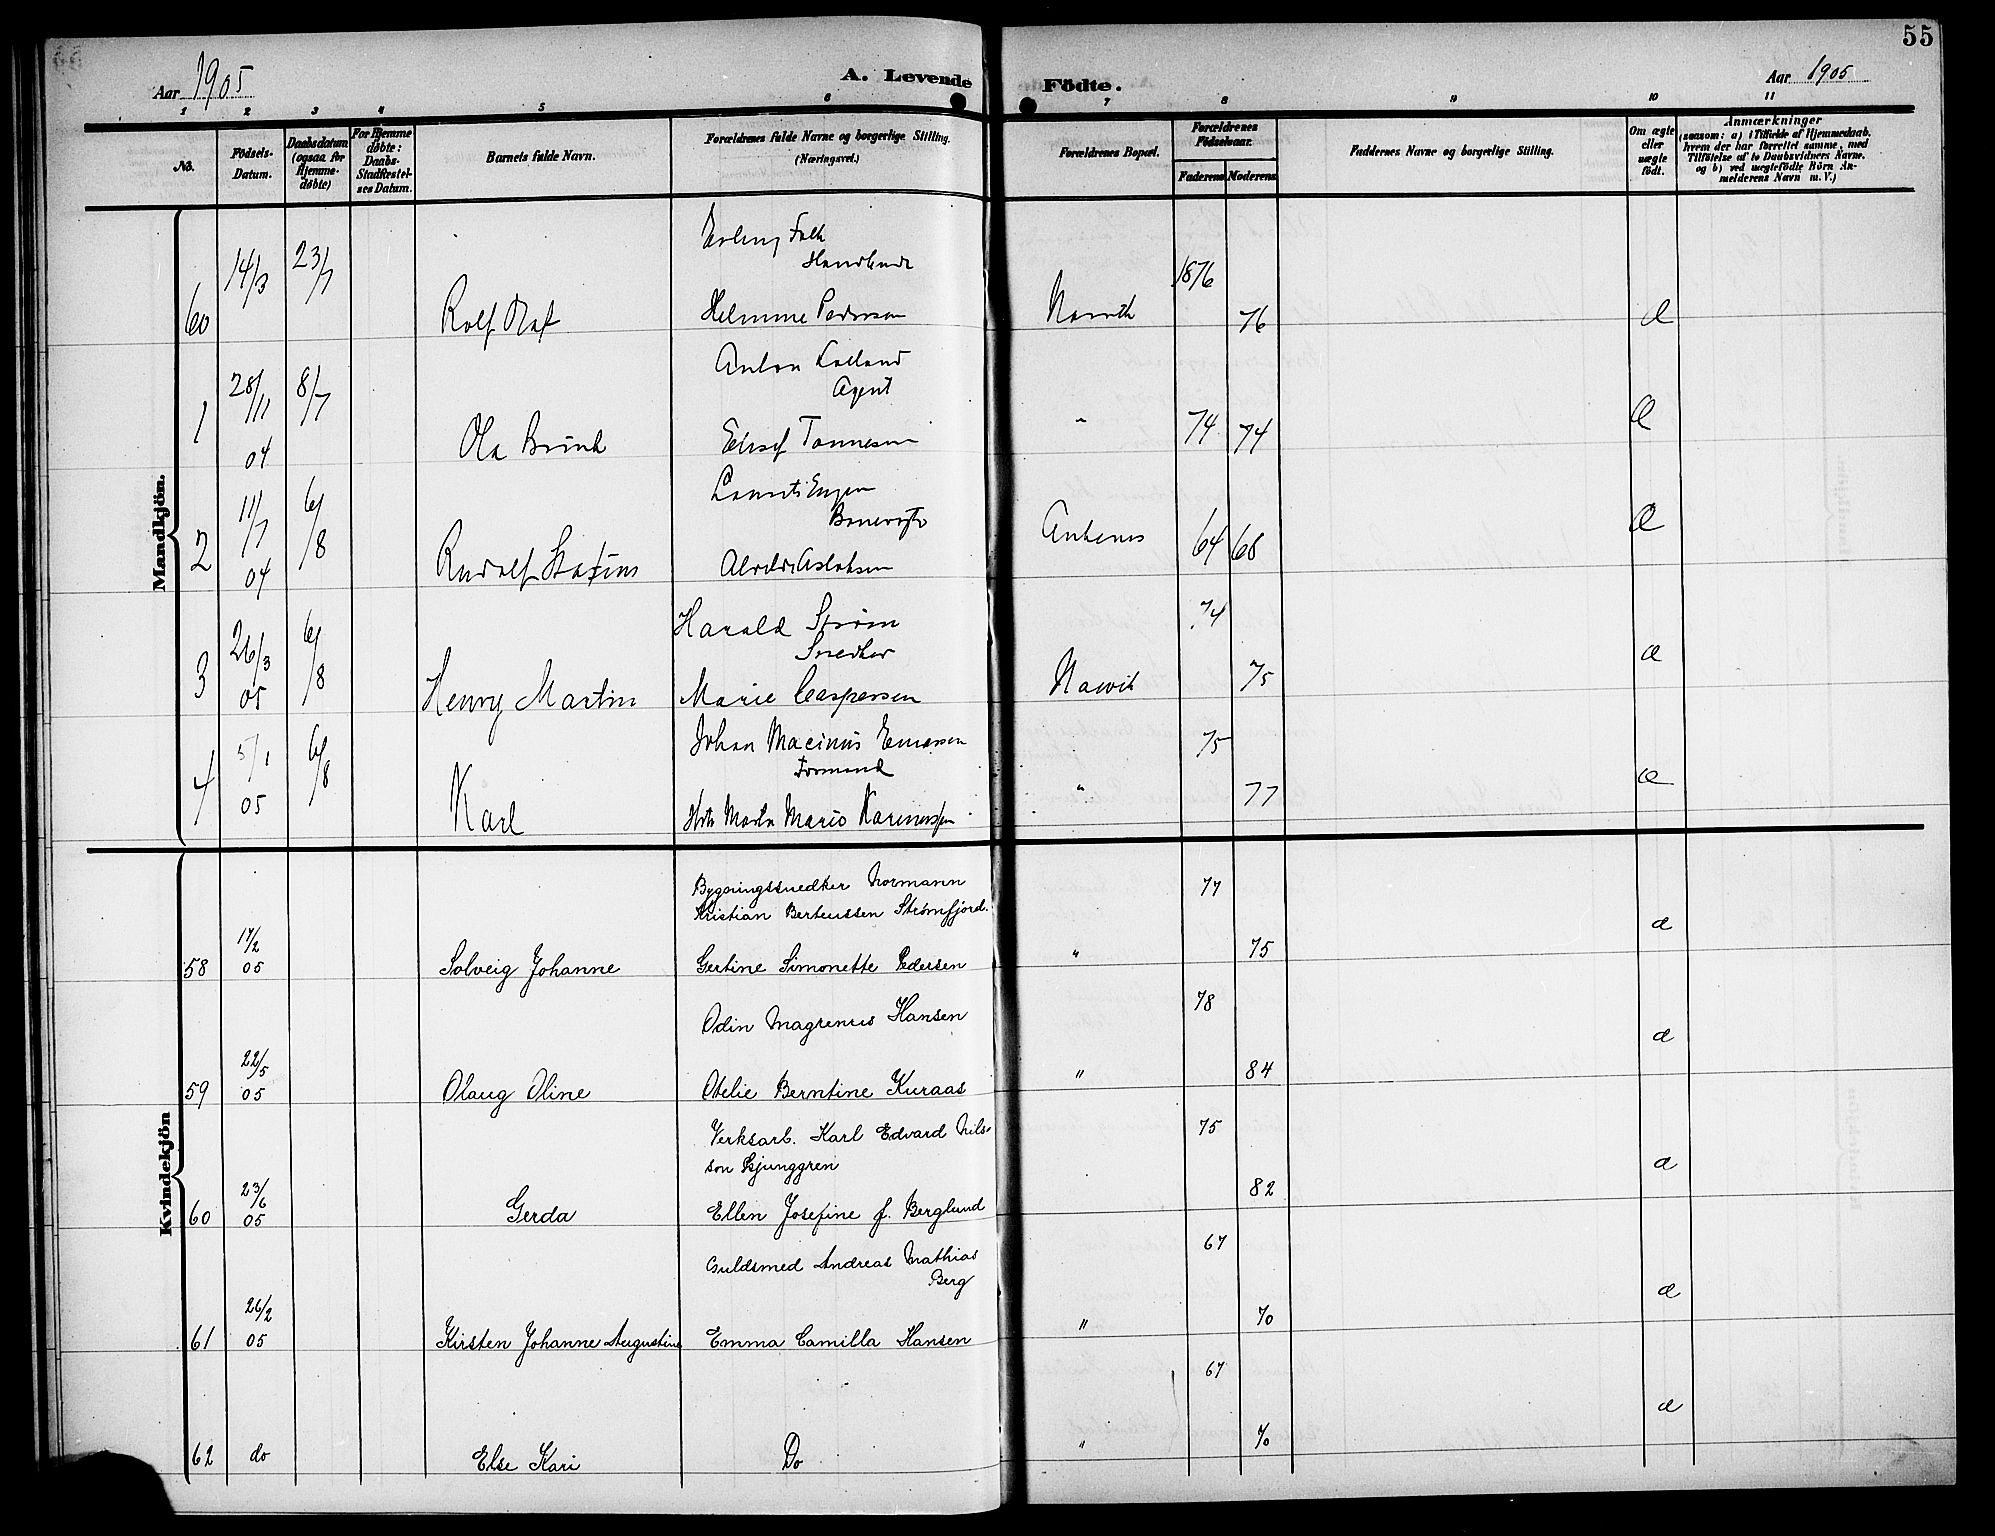 55
Aar 1905
A. Levende Födte.
Aar 1905
1 2 3 4 5 6 7 8 9 10 11
No.
Födsels-Datum.
Daabsdatum (ogsaa for Hjemme-døbte)
For Hjemme døbte: Daabs-Stadfæstel-ses Datum.
Barnets fulde Navn.
Forældrenes fulde Navne og borgerlige Stilling. (Næringsvei.)
Forældrenes Bopæl.
Forældrenes Födselsaar.
Faderens Moderens
Faddernes Navne og borgerlige Stilling.
Om ægte eller uægte födt.
Anmærkninger
(saasom: a) i Tilfælde af Hjemmedaab, hvem der har forrettet samme, med Tilföielse af to Daabsvidners Navne, og b) ved uægtefödte Börn An-melderens Navn m. V.)
Mandkjön.
Falk
14/3 23/7 1876
60 Rolf Olaf Pedersen Narvik 76 Æ
Anton
28/11 8/7 Agent
1 04 Ola " 74 74 Æ
11/7 6/8
2 04 Rudolf Ankenes 64 68 Æ
Harald Strøm 74
26/3 6/8 Snedker
3 05 Henry Martin Marie Caspersen Narvik 75 æ
Johan 75
5/1 6/8 Formand
4 05 Karl Marie " 77 æ
Kvindekjön
Bygningssnedker Normann 77
Kristian Berteussen Strømfjord.
17/2
58 05 Solveig Johanne Gertine Simonette Pedersen " 75 æ
78
Odin Magnenus Hansen
22/5
59 05 Olaug Oline Otelie Berntine Kuraas " 84 æ
Verksarb. Karl Edvard Nils- 75
son Ljunggren
23/6
60 05 Gerda Ellen Josefine f. Berglund 82 æ
Guldsmed Andreas Mathias 67
Berg
26/2
61 05 Kirsten Johanne Augustine Emma Camilla Hansen " 70 æ
67
62 do Else Kari Do " 70 æ